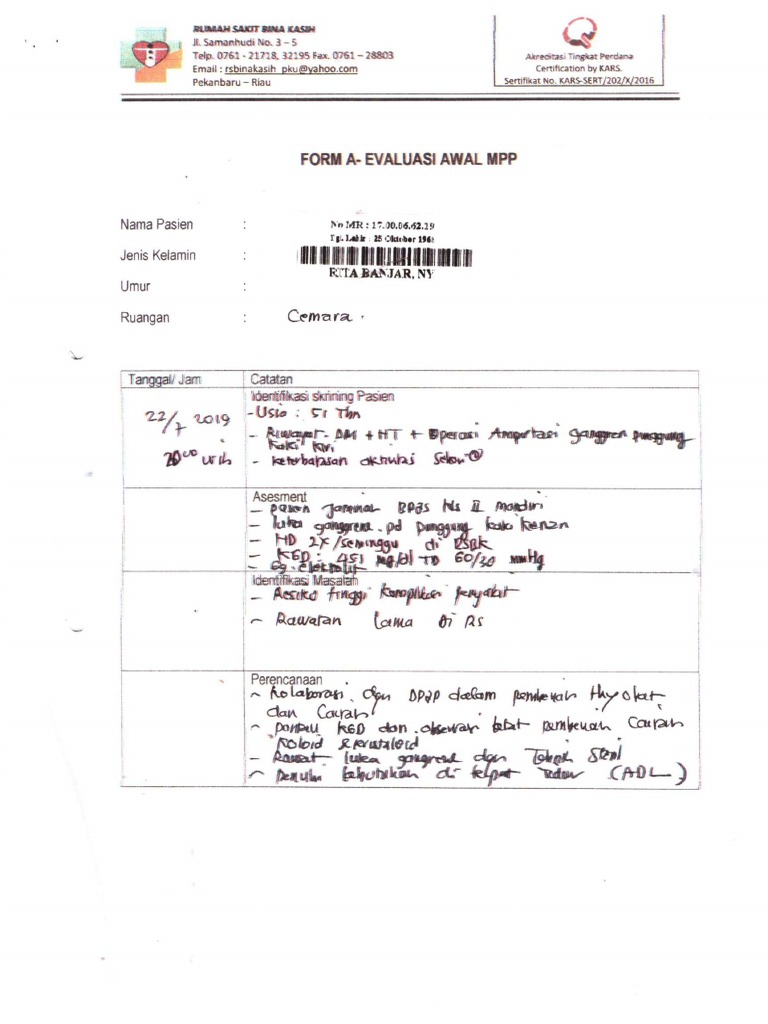 RUMAH SAKIT BINA KASIH
Jl. Samanhudi No. 3 – 5
Telp. 0761 - 21718, 32195 Fax. 0761 – 28803
Email : rsbinakasih_pku@yahoo.com
Pekanbaru – Riau
Akreditasi Tingkat Perdana
Certification by KARS.
Sertifikat No. KARS-SERT/202/X/2016
FORM A- EVALUASI AWAL MPP
Nama Pasien :
No MR : 17.00.06.62.19
Tgl. Lahir : 25 Oktober 196
Jenis Kelamin :
RITA BANJAR, NY
Umur :
Ruangan : Cemara .
Tanggal/ Jam Catatan
Identifikasi skrining Pasien
22/7 2019 - Usia : 51 Thn
- Riwayat DM + HT + Operasi Amputasi ganggren punggung
kaki kiri
20 00 wib - keterbatasan aktivitas
Asesment
- pasien jaminan BPJS kls II mandiri
- luka ganggrene pd punggung kaki kanan
- HD 2x/seminggu di RSBK
- KGD : 451 mg/dl TD 60/30 mmHg
- elektrolit
Identifikasi Masalah
- Resiko tinggi komplikasi penyakit
- Rawatan lama di RS
Perencanaan
- Kolaborasi dgn DPJP dalam pemberian
dan Cairan
- KGD dan observasi pemberian Cairan
Koloid & kristaloid
- Rawat luka gangrene dgn Teknik Steril
- kebutuhan di tempat tidur (ADL)